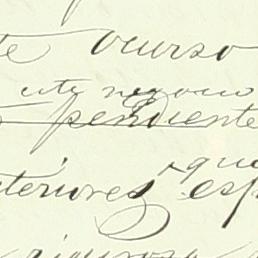 te ocurso
este negocio
pendiente
que
teriores esp